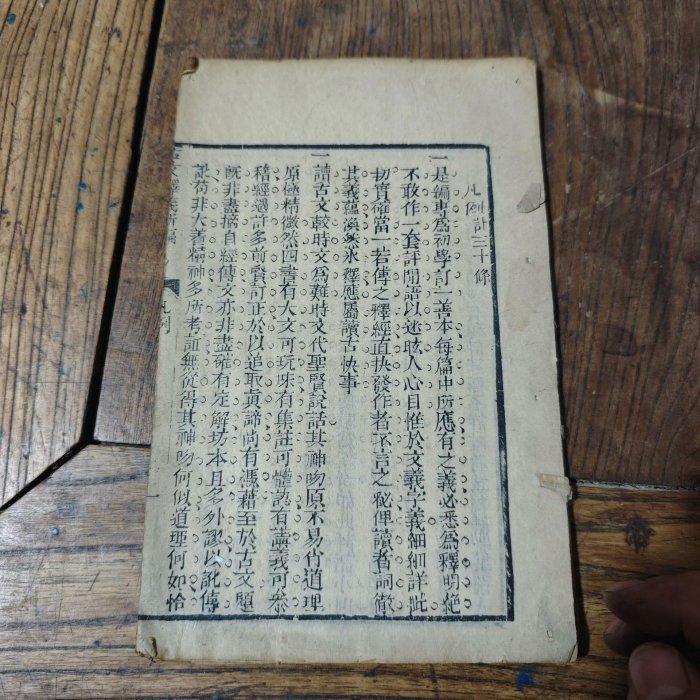 凡例計三十條
一是編專為初學訂一善本每篇中所應有之義必悉為釋明絕
不敢作一套評閒語以迷眩人心目惟於文義字義細細詳批
切實確當一若傳之釋經直抉發作者不言之秘俾讀者詞徹
其義蘊渙然冰釋應屬讀古快事
一讀古文較時文為難時文代聖賢說話其神吻原不易肖道理
原極精微然四書有大文可玩味有集註可體認有講義可參
稽經過許多前賢訂正於以追取真諦尚有憑藉至於古文題
既非盡摘自經傳文亦非盡確有定解坊本且多外謬以訛傳
訛苟非大著精神多所考訂無從得其神吻何似道理何如恰
古文釋義新編
凡例
一